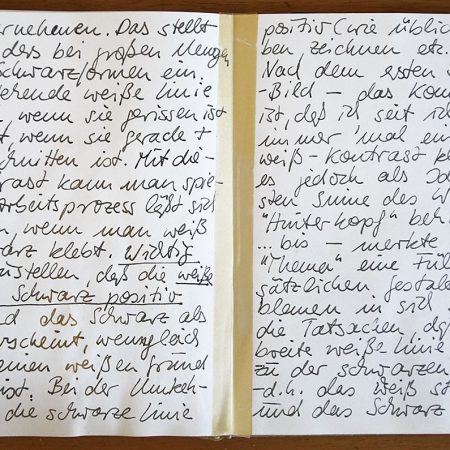 ernehmen. Das stellt
ders bei großen Mengen
Schwarzformen ein
ehende weiße Linie
, wenn sie gerissen ist
t, wenn sie gerade
hnitten ist. Mit die-
rast kann man spie-
Arbeitsprozess läßt sich
n, wenn man weiß
arz klebt. Wichtig
zustellen, daß die weiße
Schwarz positiv
d das Schwarz als
rscheint, wenngleich
einen weißen Grund
ist. Bei der Umkeh-
die schwarze Linie
positiv (wie üblich
ben zeichnen etc.
Nach dem ersten S
-Bild - das Kon
ist, daß ich seit
immer 'mal ein
weiß-Kontrast kl
es jedoch als Id
sten Sinne des W
"Hinterkopf" beh
... bis - merkte
"Thema" eine Fül
sätzlichen gestal
blemen in sich
die Tatsachen, daß
breite weiße Linie
zu der schwarzen
-d.h. das weiß st
und das Schwarz